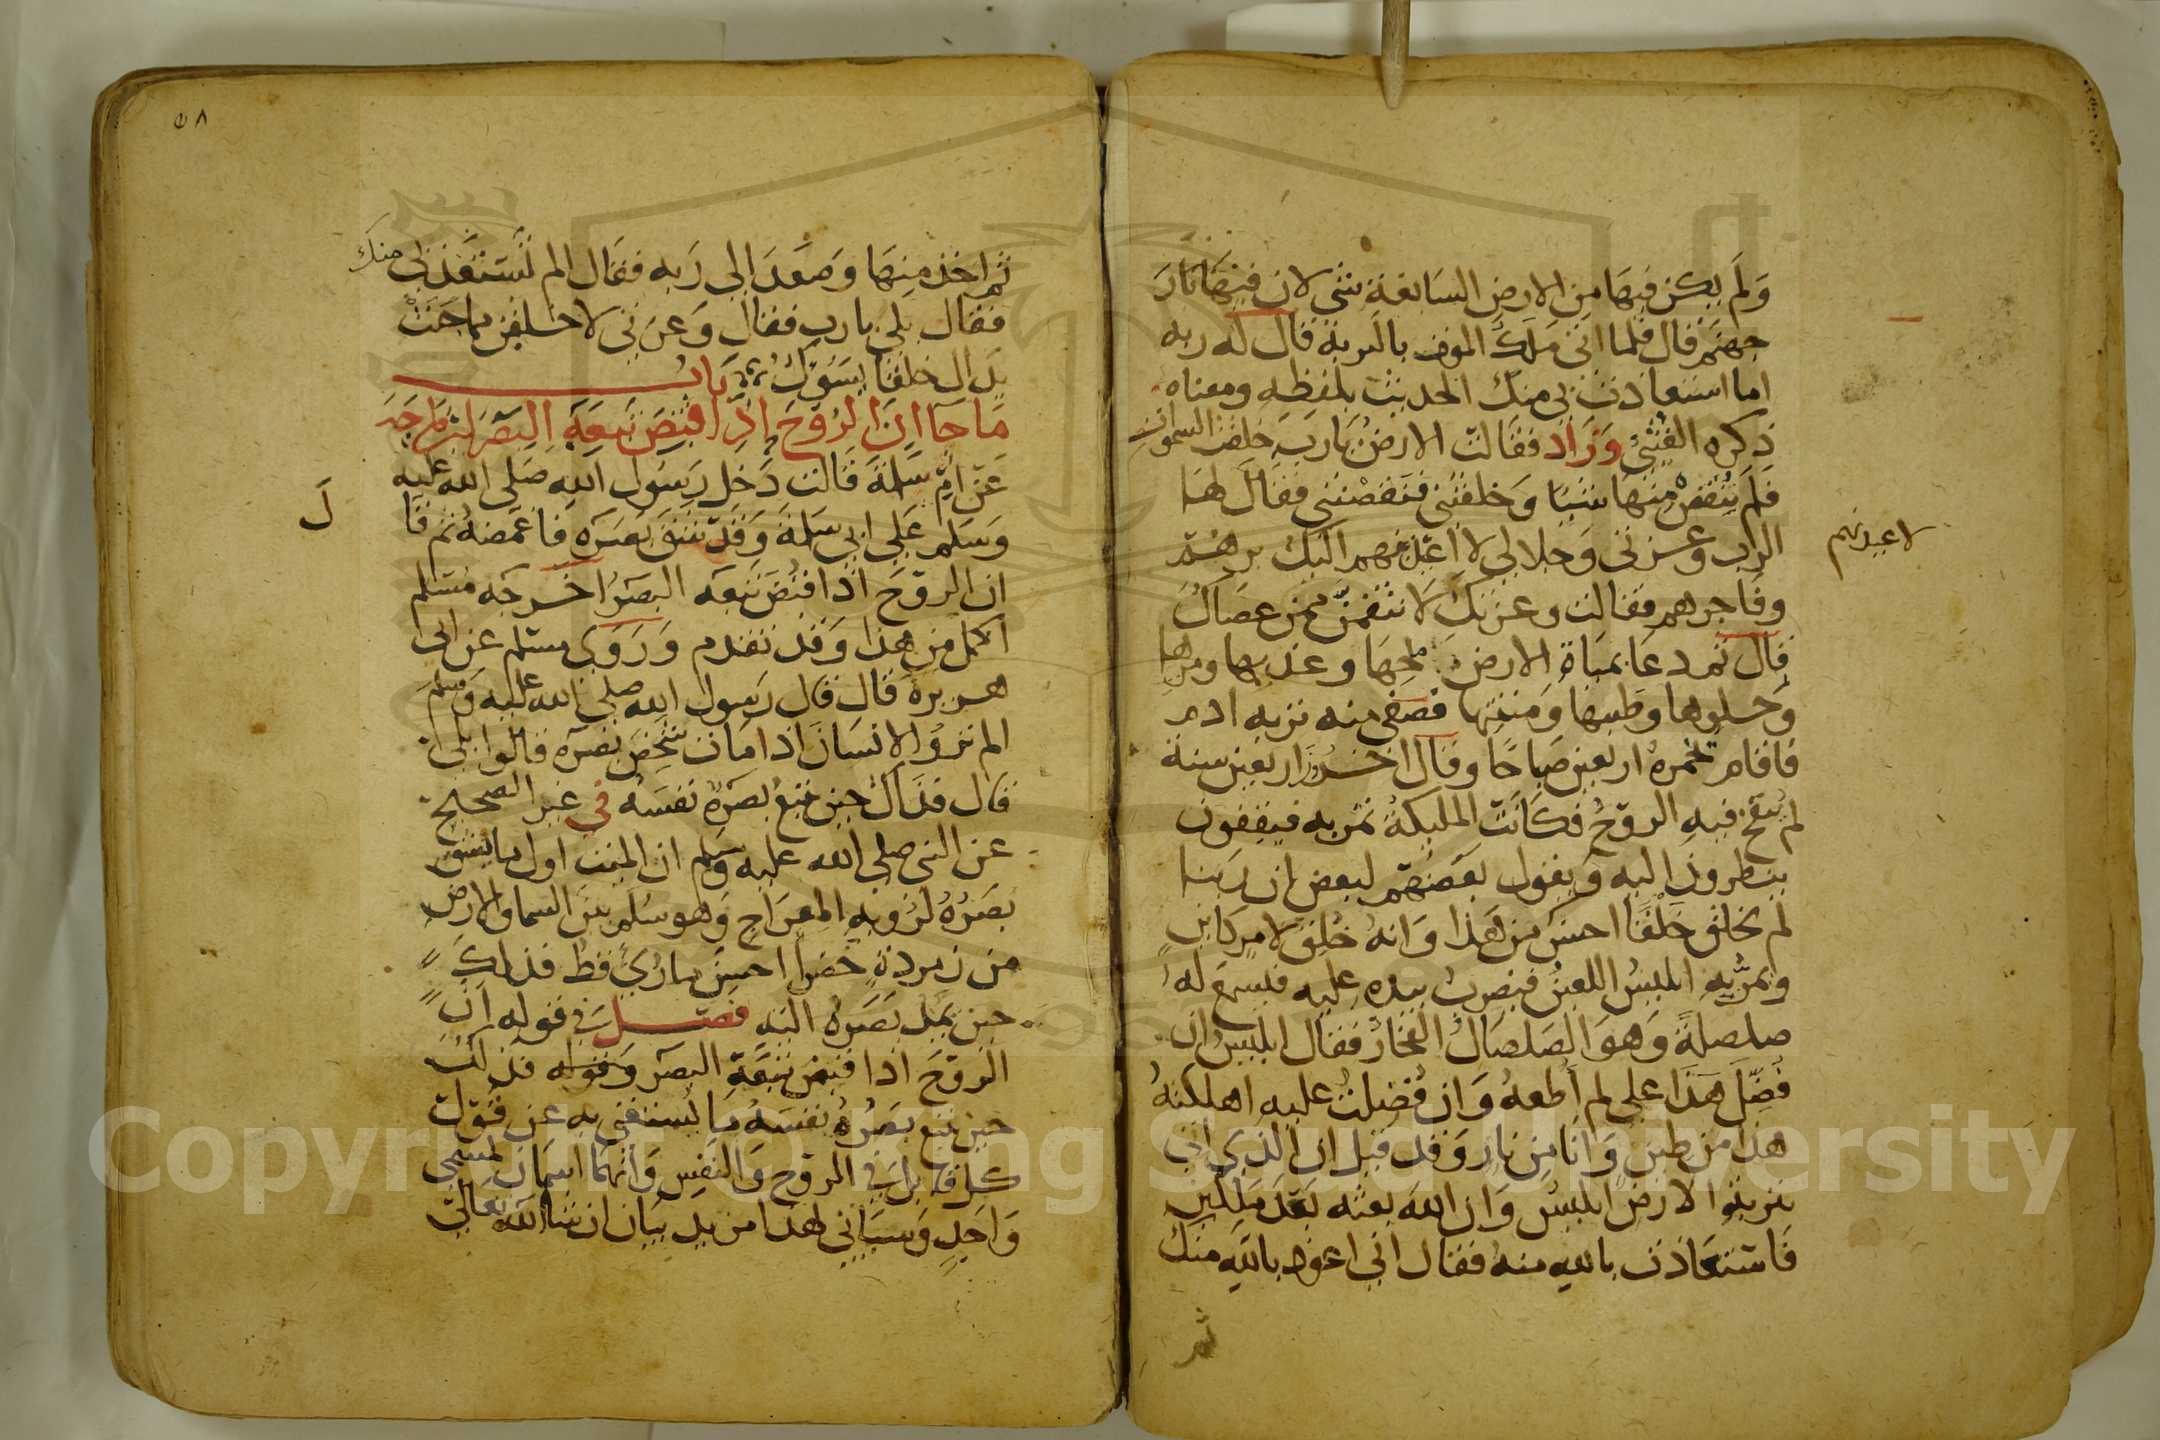 ولم يكن فيها من الارض السابعة شي لان فيها نار
جهنم قال فلما اتى ملك الموت بالتربة قال له ربه
اما استعاذت بي منك الحديث بلفظه ومعناه
ذكره القتبي وزاد فقالت الارض يارب خلقت السموات
فلم تنقص منها شيا وخلقتني فنقصتني فقال لها
الرب وعزتي وجلالي لا اعيدنهم اليك برهم
لاعيدنهم
وفاجرهم فقالت وعزتك لانتقمن ممن عصاك
قال ثم دعا بمياة الارض ملحها وعذبها ومرها
وحلوها وطيبها ومنتنها فصفى منه تربه ادم
فاقام تخمره اربعين صباحا وقال اخرون اربعين سنة
لم ينفخ فيه الروح فكانت المليكة تمر به فيقفون
ينظرون اليه ويقول بعضهم لبعض ان ربنا
لم يخلق خلقا احسن من هذا وانه خلق لامر كاين
ويمر به ابليس اللعين فيضرب بيده عليه فيسمع له
صلصلة وهو الصلصال الفخار فقال ابليس ان
فضل هذا علي لم اطعه وان فضلت عليه اهلكته
هذا من طين وانا من نار وقد قيل ان الذي اتى
بتربة الارض ابليس وان الله بعثه بعد ملكين
فاستعاذت بالله منه فقال اني اعوذ بالله منك
ثم
٥٨
ثم اخذ منها وصعد الى ربه فقال الم تستعذ بي منك
فقال بلى يارب فقال وعزتي لاخلقن مما جنت
يداك خلقا يسوك باب
ما جا ان الروح اذا قبض تبعه البصر
عن ام سلمة قالت دخل رسول الله صلى الله عليه
وسلم على ابي سلمة وقد شق بصره فاغمضه ثم قا
ل
ان الروح اذا قبض تبعه البصر اخرجه مسلم
اكمل من هذا وقد تقدم وروى مسلم عن ابى
هريرة قال قال رسول الله صلى الله عليه وسلم
الم تروا الانسان اذا مات شخص بصره قالوا بلى
قال فذاك حين يتبع بصره نفسه في غير الصحيح
عن النبي صلى الله عليه وسلم ان الميت اول ما يشق
بصره لروية المعراج وهو سلم بين السما والارض
من زمردة خضرا احسن ما رئي قط فذلك
حين يمد بصره اليه فصل في قوله ان
الروح اذا قبض تبعه البصر وقوله فذلك
حين يتبع بصره نفسه ما يستغنى به عن قول
كل قايل في الروح والنفس وانهما اسمان لمسمى
واحد وسياتي لهذا مزيد بيان ان شا الله تعالى
Copyright © King Saud University